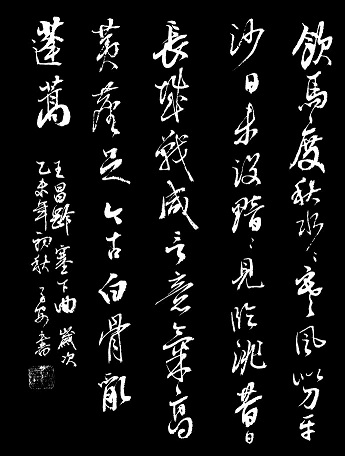 飲馬度秋水々寒風似刀平
沙日未沒黯々見臨洮昔日
長城戰咸言意氣高
黃塵足今古白骨亂
蓬蒿
王昌齡 塞下曲 歲次
乙未年初秋 書